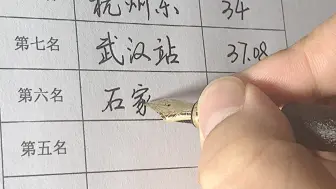 杭州东 34
第七名 武汉站 37.08
第六名 石家
第五名